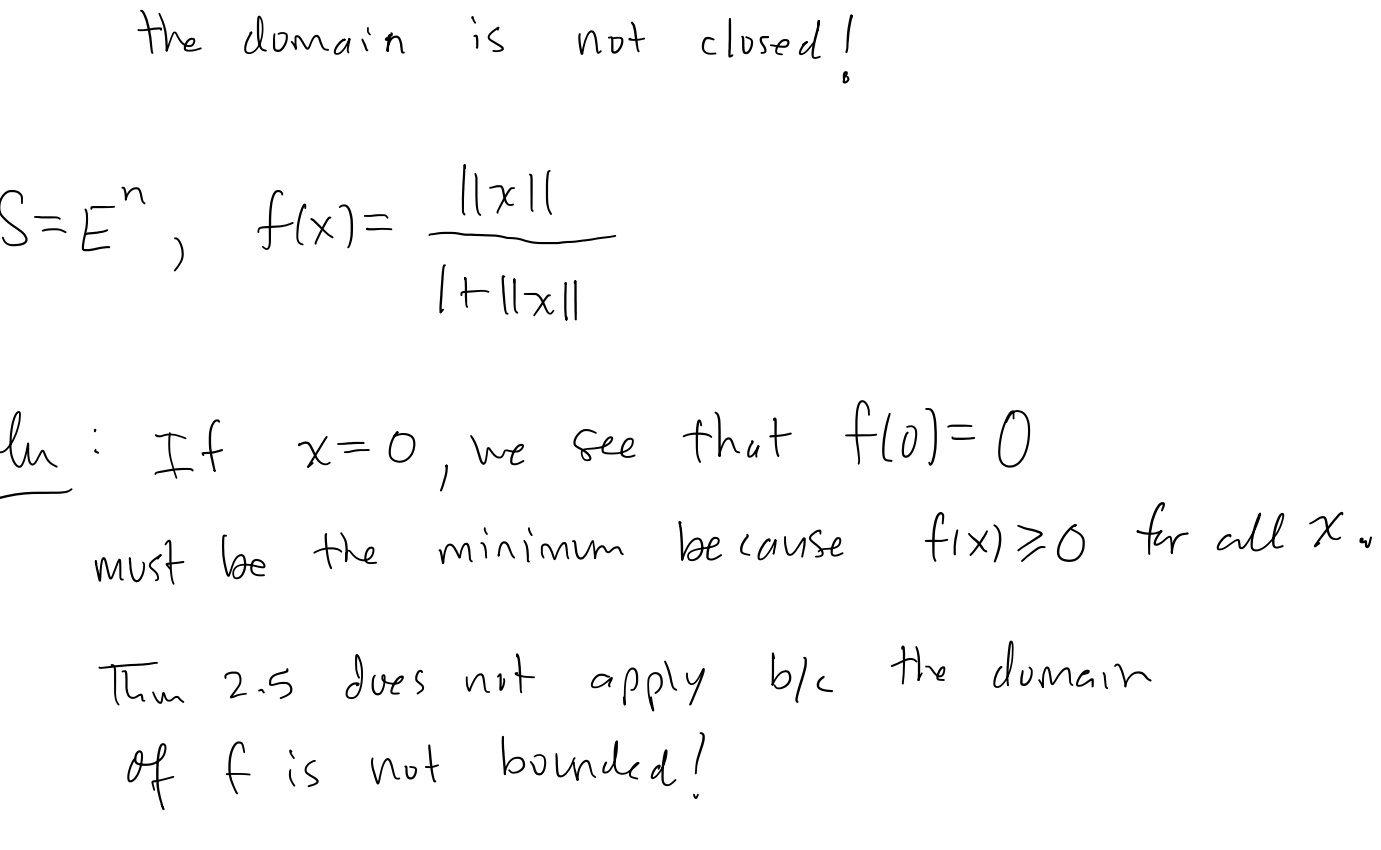 the domain is not closed!
S=Eⁿ, f(x)= ||x|| / 1+||x||
ln : If x=0, we see that f(0)=0
must be the minimum because f(x)⩾0 for all x.
Thm 2.5 does not apply b/c the domain
of f is not bounded!